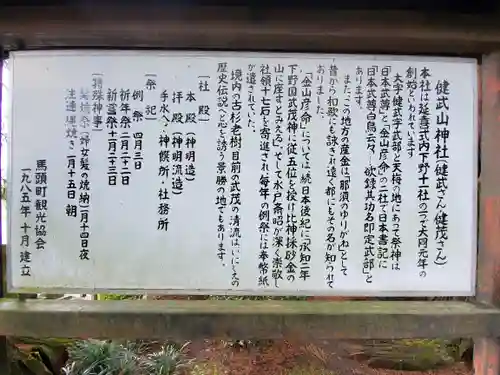 健武山神社(健武さん・健茂さん)
本社は延喜式内下野十一社の一つで大同元年の
創始といわれています
大字健武字武部と天梅の地にあって祭神は
「日本武尊」と「金山彦命」の二社で日本書記に
「日本武尊白鳥云々―欲録其功名即定武部」と
あります。
また「この地方の産金は「那須のゆりがね」として
昔から和歌にも詠まれ遠く都にもその名が知られて
おりました。
「金山彦命」については続日本後紀に「承知二年
下野国武茂神に従五位を授け比神採砂金の
山に座す」とみえ、そして水戸斉昭が深く崇敬し
社領十七石を寄進され、毎年の例祭には奉幣紙
が遣されていた。
境内の古杉老樹目前の武茂の清流はいにしえの
歴史伝説へと心を誘う景勝の地でもあります。
〔社 殿〕
本 殿(神明造)
拝 殿(神明流造)
手水入・神饌所・社務所
〔祭 祀〕
例 祭 四月三日
祈年祭 十二月二十二日
祈霊祭 十二月二十三日
〔特殊神事〕
髪焼祭(婦女髪の焼納)二月十四日夜
注連縄焼き 二月十五日 朝
馬頭町観光協会
一九八五年 十月 建立